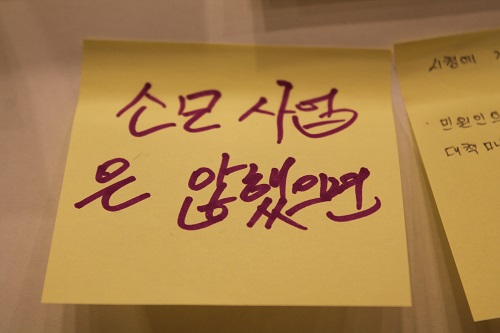 소모 사업
은 않했으면
시청에
· 민원인의
대책 마